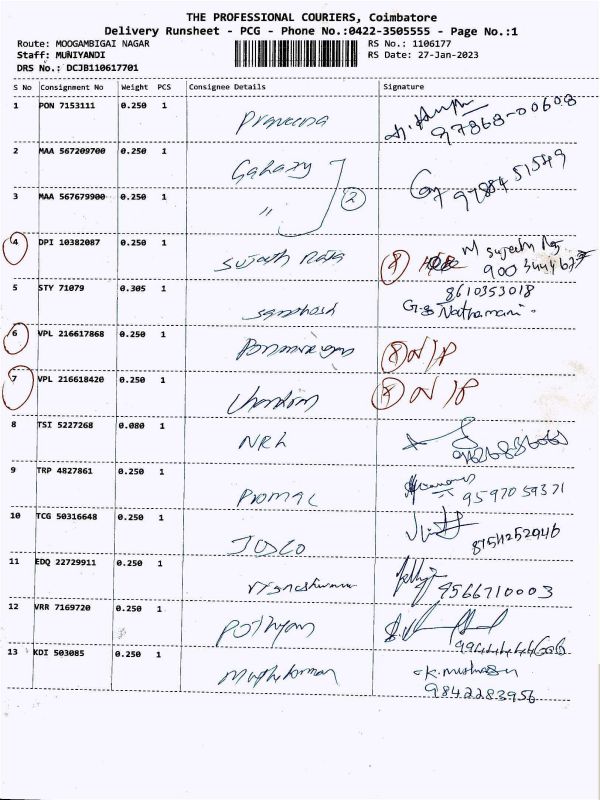 THE PROFESSIONAL COURIERS, Coimbatore
Delivery Runsheet - PCG - Phone No.:0422-3505555 - Page No.:1
Route: MOOGAMBIGAI NAGAR RS No.: 1106177
Staff: MUNIYANDI RS Date: 27-Jan-2023
DRS No.: DCJB110617701
S No Consignment No Weight PCS Consignee Details Signature
1 PON 7153111 0.250 1 Praveena 97868-00608
2 MAA 567209700 0.250 1 Galaxy 9788451549
3 MAA 567679900 0.250 1 " 2
4 DPI 10382087 0.250 1 Sujeeth Raja M Sujeeth
5 STY 71079 0.305 1 Santhosh 8610353018
G.S Nathamani.
6 VPL 216617868 0.250 1 N/P
7 VPL 216618420 0.250 1 N/P
8 TSI 5227268 0.080 1 NRL
9 TRP 4827861 0.250 1 Promac 9597059371
10 TCG 50316648 0.250 1 JOSCO 8754252946
11 EDQ 22729911 0.250 1 9566710003
12 VRR 7169720 0.250 1 Pothyam
13 KDI 503085 0.250 1 K.
9842283956